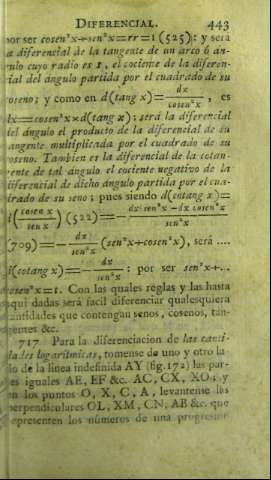 DIFERENCIAL. 443
por ser cosen²x+sen²x=rr=1 (525): y será
la diferencial de la tangente de un arco ó án-
gulo cuyo radio es 1, el cociente de la diferen-
cial del ángulo partida por el cuadrado de su
coseno; y como en d(tang x)=dx/cosen²x, es
dx=cosen²x×d(tang x); será la diferencial
del ángulo el producto de la diferencial de su
tangente multiplicada por el cuadrado de su
coseno. Tambien es la diferencial de la cotan-
gente de tal ángulo el cociente negativo de la
diferencial de dicho ángulo partida por el cua-
drado de su seno; pues siendo d(cotang x)=
d(cosen x/sen x) (522)=−dx·sen²x−dx cosen²x/sen²x
(709)=−dx/sen²x (sen²x+cosen²x), será ....
d(cotang x)=−dx/sen²x; por ser sen²x+..
cosen²x=1. Con las quales reglas y las hasta
aqui dadas será facil diferenciar qualesquiera
cantidades que contengan senos, cosenos, tán-
gentes &c.
717 Para la diferenciacion de las canti-
dades logarítmicas, tomense de uno y otro la-
do de la linea indefinida AY (fig. 172) las par-
tes iguales AE, EF &c. AC, CX, XO; y
en los puntos O, X, C, A, levantense las
perpendiculares OL, XM, CN, AB &c. que
representen los números de una progresion